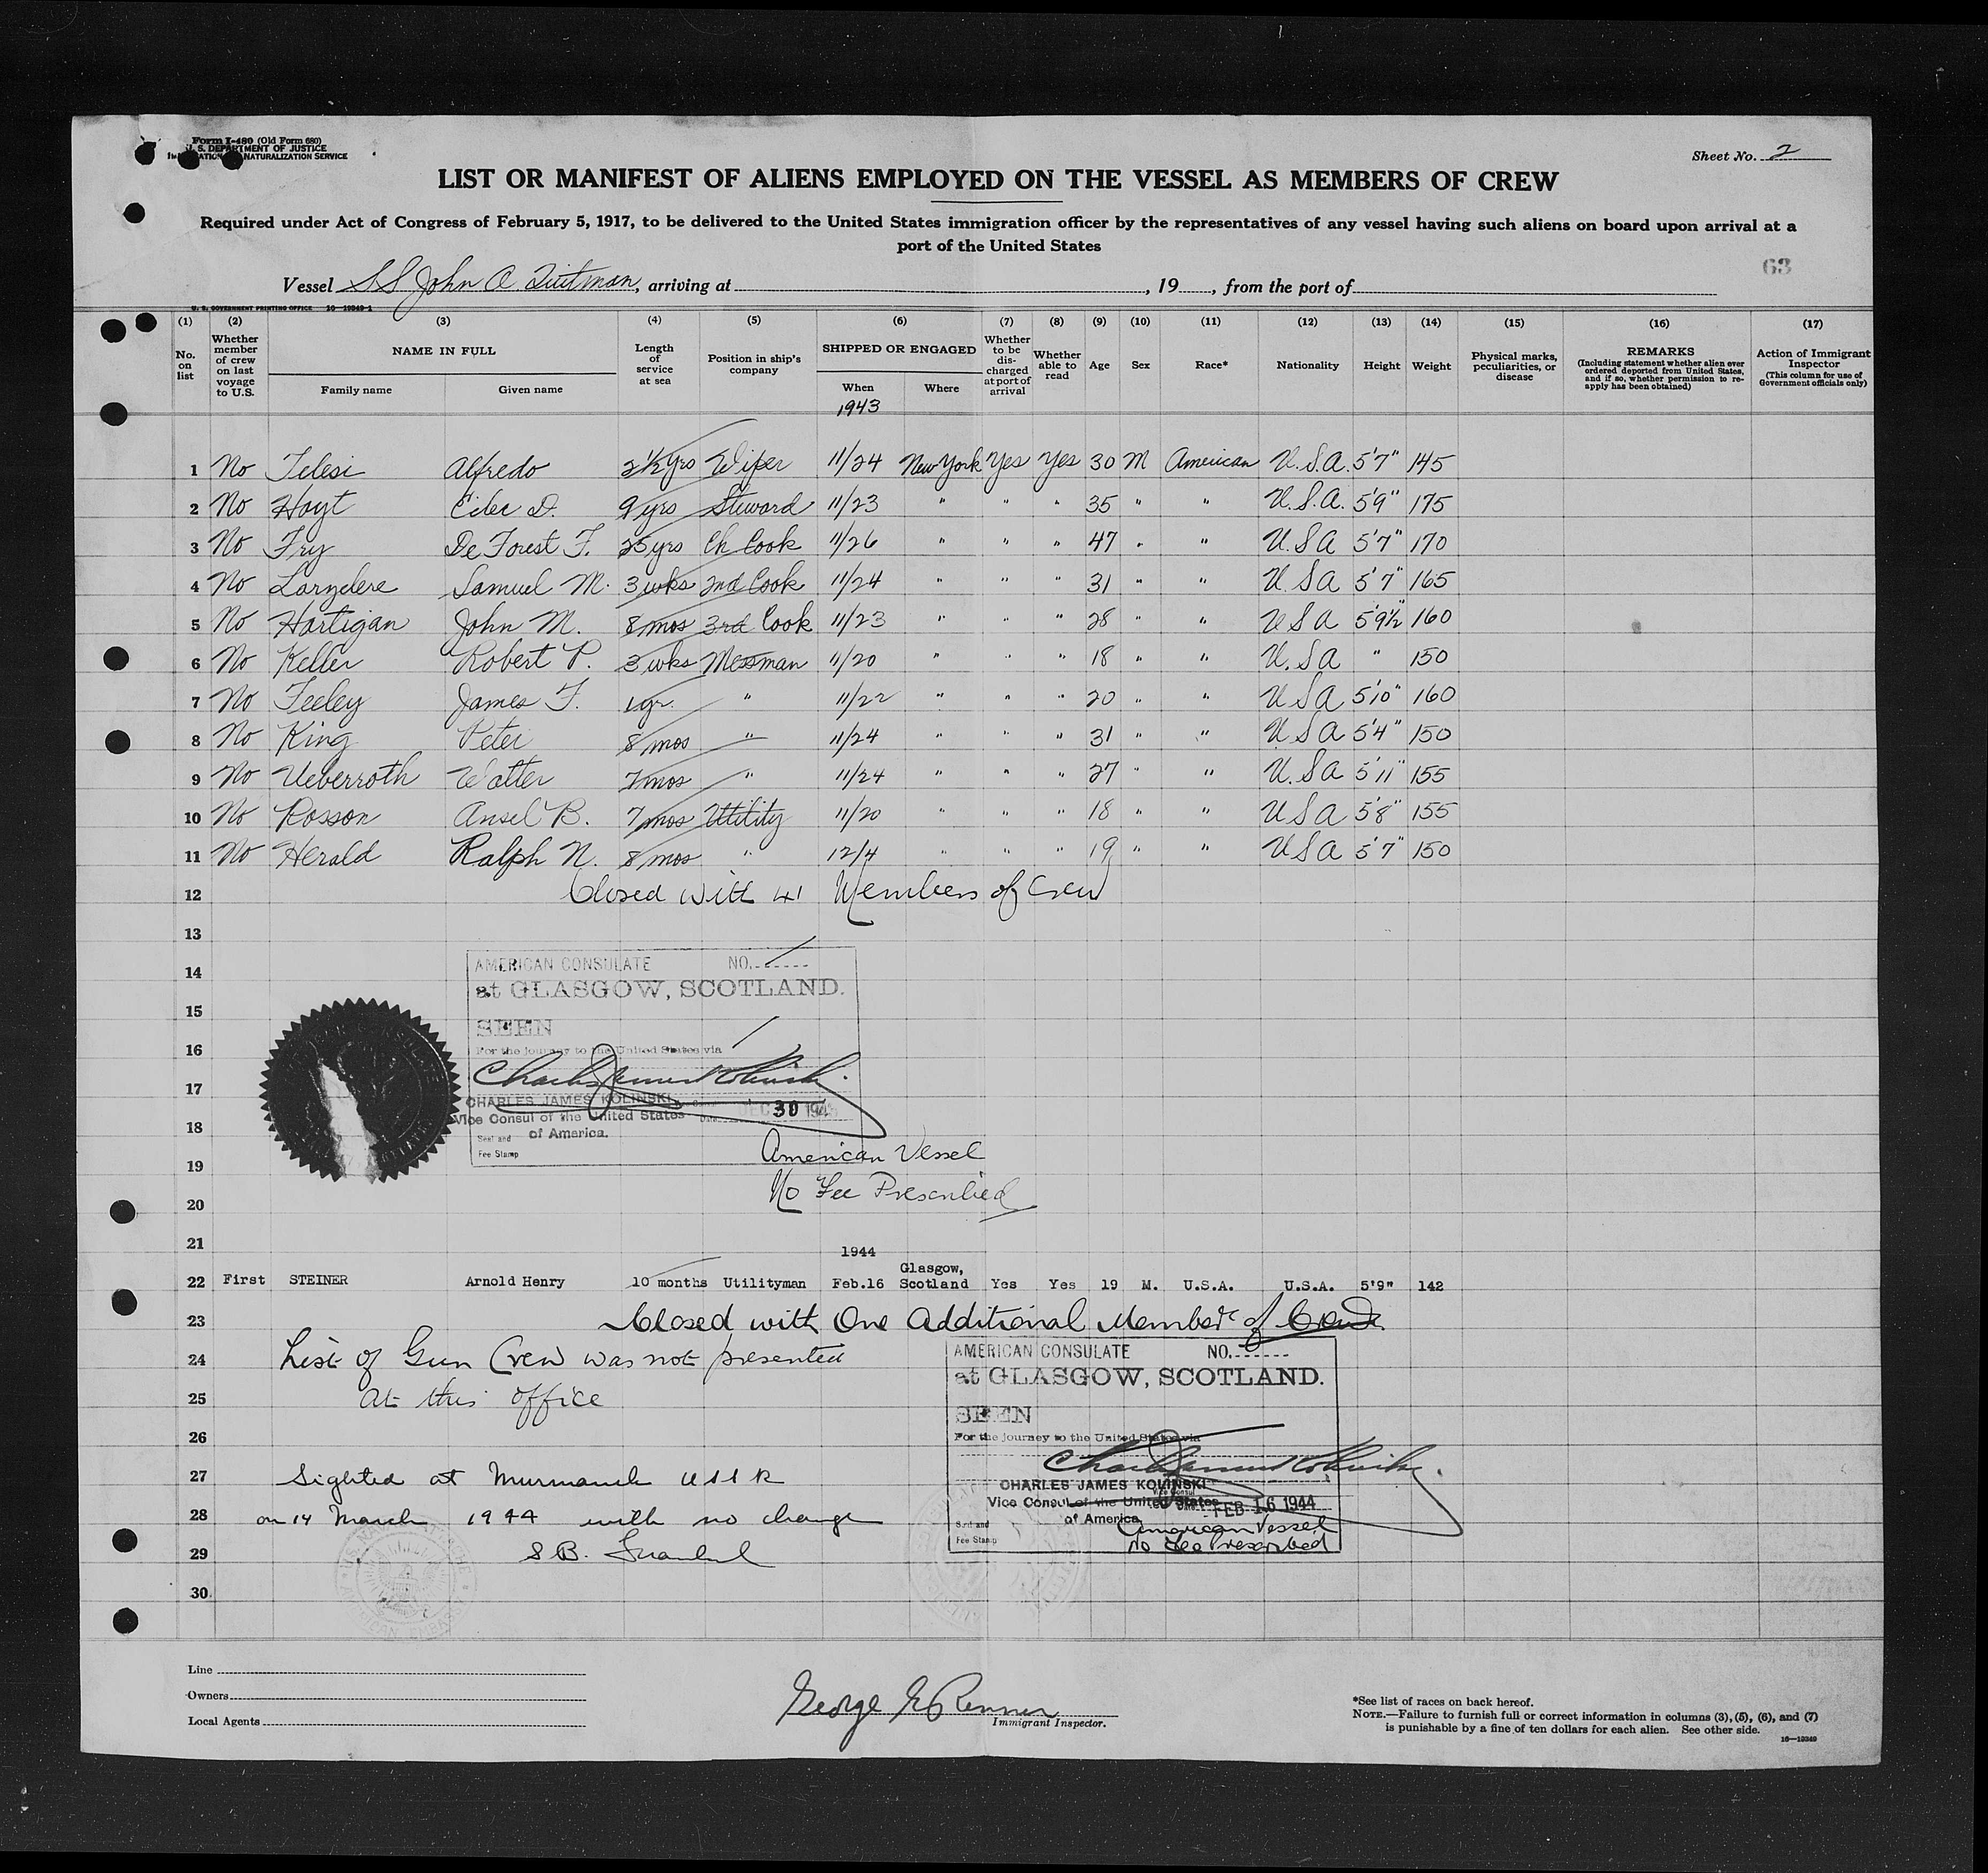 Form I-480 (Old Form 680)
U. S. DEPARTMENT OF JUSTICE
IMMIGRATION AND NATURALIZATION SERVICE
Sheet No. 2
LIST OR MANIFEST OF ALIENS EMPLOYED ON THE VESSEL AS MEMBERS OF CREW
Required under Act of Congress of February 5, 1917, to be delivered to the United States immigration officer by the representatives of any vessel having such aliens on board upon arrival at a
port of the United States
63
Vessel SS John A. , arriving at , 19 , from the port of
U. S. GOVERNMENT PRINTING OFFICE 16-19349-1
(1) (2) (3) (4) (5) (6) (7) (8) (9) (10) (11) (12) (13) (14) (15) (16) (17)
No. on list
Whether member of crew on last voyage to U.S.
NAME IN FULL
Family name
Given name
Length of service at sea
Position in ship's company
SHIPPED OR ENGAGED
When
Where
Whether to be discharged at port of arrival
Whether able to read
Age
Sex
Race*
Nationality
Height
Weight
Physical marks, peculiarities, or disease
REMARKS
(Including statement whether alien ever ordered deported from United States, and if so, whether permission to reapply has been obtained)
Action of Immigrant Inspector
(This column for use of Government officials only)
1943
1 No Telesi Alfredo 2½ yrs Wiper 11/24 New York Yes Yes 30 M American U.S.A. 5'7" 145
2 No Hoyt D. 9 yrs Steward 11/23 " " " 35 " " U.S.A. 5'9" 175
3 No Fry De Forest F. 25 yrs Ch Cook 11/26 " " " 47 " " U.S.A 5'7" 170
4 No Larzelere Samuel M. 3 wks 2nd Cook 11/24 " " " 31 " " U S A 5'7" 165
5 No Hartigan John M. 8 mos 3rd Cook 11/23 " " " 28 " " U S A 5'9½" 160
6 No Keller Robert P. 3 wks Messman 11/20 " " " 18 " " U.S A " 150
7 No Feeley James F. 1 yr. " 11/22 " " " 20 " " U S A 5'10" 160
8 No King Peter 8 mos " 11/24 " " " 31 " " U S A 5'4" 150
9 No Ueberroth Walter 7 mos " 11/24 " " " 27 " " U.S A 5'11" 155
10 No Rosson Ansel B. 7 mos Utility 11/20 " " " 18 " " U S A 5'8" 155
11 No Herald Ralph N. 8 mos " 12/4 " " " 19 " " U S A 5'7" 150
12 Closed with 41 Members of Crew
13
14
15
16
17
18
19
20
21
AMERICAN CONSULATE NO.
at GLASGOW, SCOTLAND.
SEEN
For the journey to the United States via
Charles James Kolinski
CHARLES JAMES KOLINSKI
Vice Consul of the United States Date DEC 30 194
of America.
Seal and
Fee Stamp
American Vessel
No Fee Prescribed
1944
22 First STEINER Arnold Henry 10 months Utilityman Feb.16 Glasgow, Scotland Yes Yes 19 M. U.S.A. U.S.A. 5'9" 142
23 Closed with One Additional Member of Crew
24 List of Gun Crew was not presented
25 at this office
26
AMERICAN CONSULATE NO.
at GLASGOW, SCOTLAND.
SEEN
For the journey to the United States via
Charles James Kolinski
CHARLES JAMES KOLINSKI
Vice Consul of the United States
of America Date FEB 16 1944
Seal and
Fee Stamp
American Vessel
No Fee Prescribed
27 Sighted at Murmansk USSR
28 on 14 March 1944 with no change
29 S B. Frankel
30
Line
Owners
Local Agents
George E Renner
Immigrant Inspector.
*See list of races on back hereof.
NOTE.—Failure to furnish full or correct information in columns (3), (5), (6), and (7)
is punishable by a fine of ten dollars for each alien. See other side.
16-19349